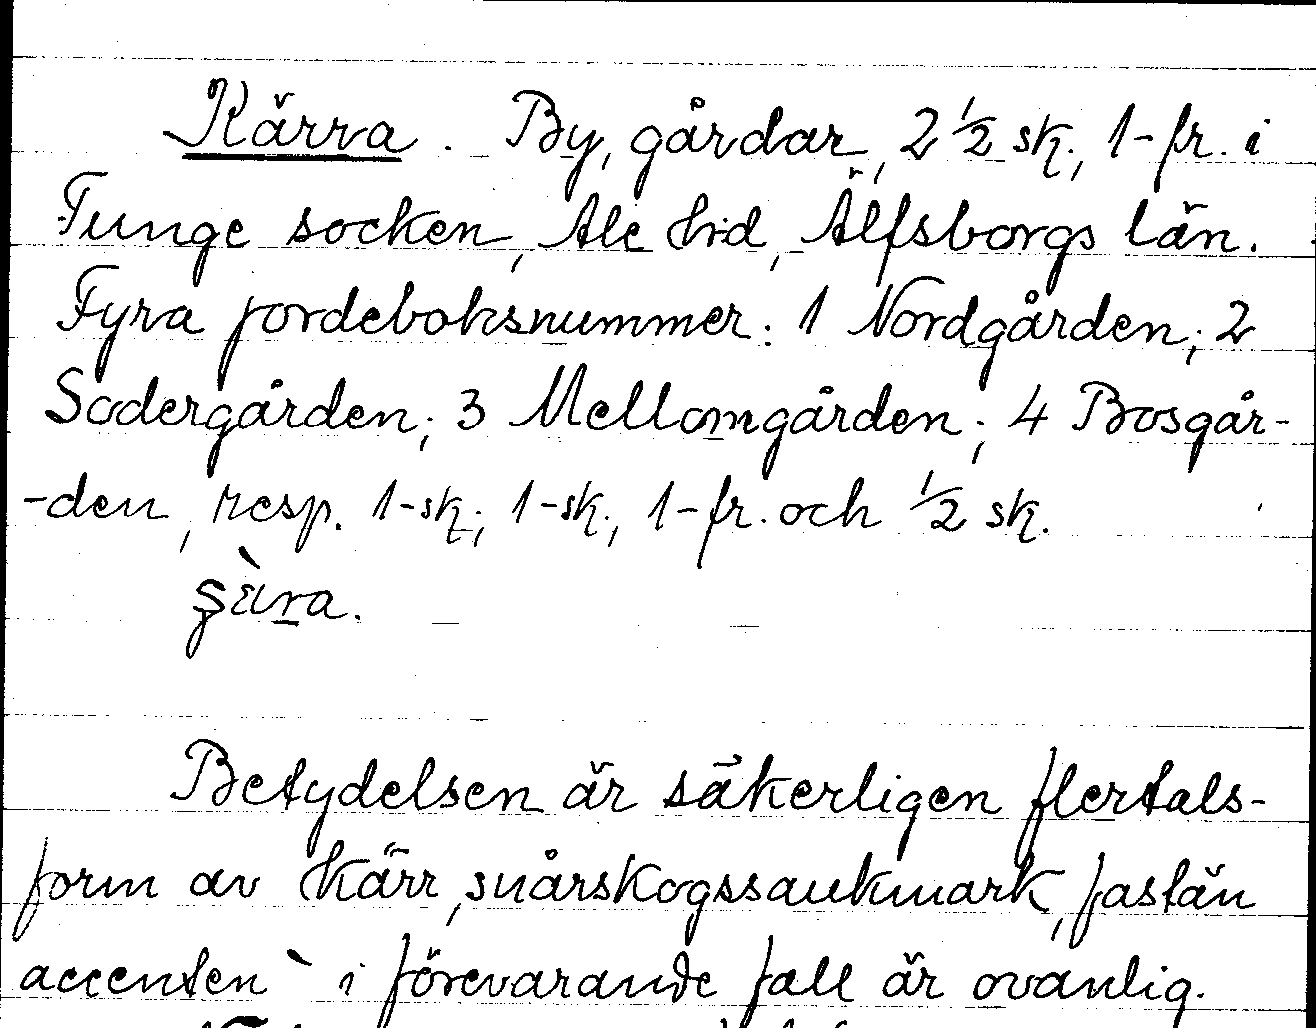 Kärra. By, gårdar, 2 ½ sk., 1-fr. i
Tunge socken, Ale hrd, Älfsborgs län.
Fyra jordeboksnummer: 1 Nordgården; 2
Södergården; 3 Mellomgården; 4 Bosgår-
-den, resp. 1-sk; 1-sk., 1-fr. och ½ sk.
Betydelsen är säkerligen flertals-
form av kärr, snårskogssankmark, fastän
accenten ` i förevarande fall är ovanlig.